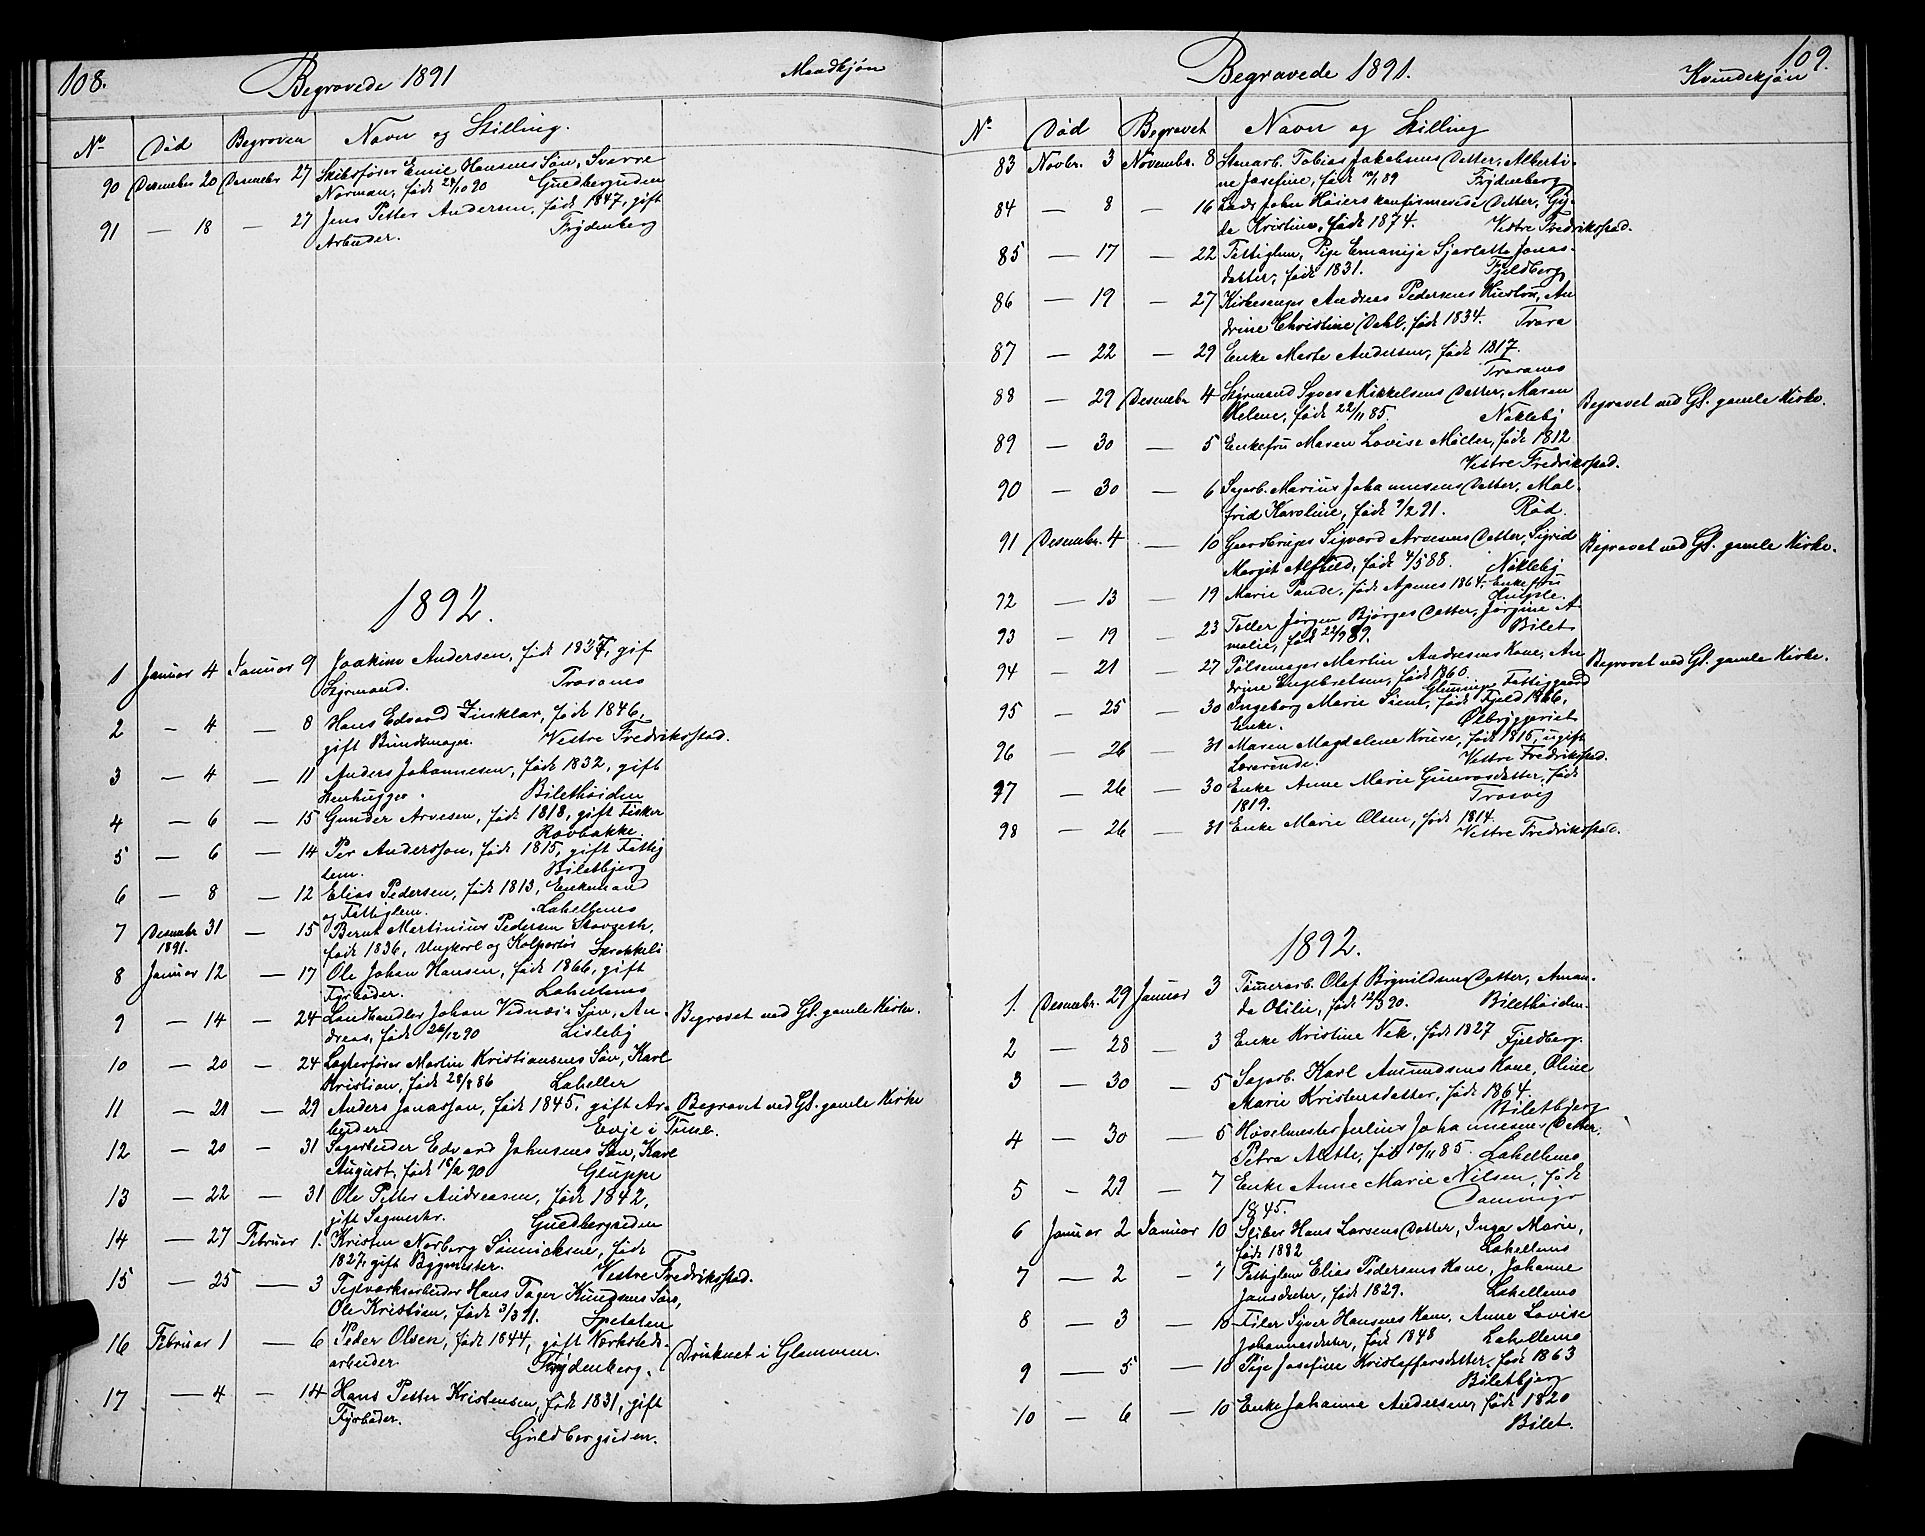 108. Begravede 1891 Mandkjøn
No Død Begraven Navn og Stilling.
90 Desember 20 Desember 27 Skibsfører Emil Hansens Søn, Sverre
Norman, født 28/10 90 Guldbergsiden
91 — 18 — 27 Jens Petter Andersen, født 1847, gift
Arbeider. Frydenberg
1892.
1 Januar 4 Januar 9 Joakim Andersen, født 1837, gift
Styrmand. Trosvik
2 — 4 — 8 Hans Edvard Zinklar, født 1846,
gift Bundtmager. Vestre Fredriksstad.
3 — 4 — 11 Anders Johannesen, født 1832, gift
Stenhugger. Bilethøiden
4 — 6 — 15 Gunder Arvesen, født 1818, gift Fisker
Ravbakke.
5 — 6 — 14 Per Andersson, født 1815, gift Fattig
lem. Biletbjerg
6 — 8 — 12 Elias Pedersen, født 1813, Enkemand
og Fattiglem. Lahellemo
7 Desember 31 — 15 Bernt Martinius Pedersen
1891. født 1836, Ungkarl og Kolportør
8 Januar 12 — 17 Ole Johan Hansen, født 1866, gift
Fyrbøder. Lahellemo
9 — 14 — 24 Landhandler Johan Vednæs's Søn, An- Begravet ved Gl. gamle Kirke.
dreas, født 26/12 90 Lisleby
10 — 20 — 24 Lagterfører Martin Kristiansens Søn, Karl
Kristian, født 28/8 86 Laheller
11 — 21 — 29 Anders Jonasson, født 1845, gift Ar- Begravet ved Gl. gamle Kirke
beider. Evje i Tune.
12 — 20 — 31 Sagarbeider Edvard Johnsens Søn, Karl
August, født 18/2 90 Gluppe
13 — 22 — 31 Ole Petter Andreasen, født 1842,
gift Sagmester. Guldbergsiden
14 — 27 Februar 1. Kristen Norberg Sønnichsen, født
1827, gift Bygmester. Vestre Fredriksstad.
15 — 25 — 3 Teglværksarbeider Hans Tager Knudsens Søn,
Ole Kristian, født 3/3 91. Spetalen
16 Februar 1 — 6 Peder Olsen, født 1844, gift Værksteds- Druknet i Glommen.
arbeider Frydenberg.
17 — 4 — 14 Hans Petter Kristensen, født 1831, gift
Fyrbøder.
Guldbergsiden.
Begravede 1891. Kvindekjøn 109.
No Død Begravet Navn og Stilling
83 Novbr. 3 November 8 Stenarb. Tobias Jakobsens Datter, Alberti-
ne Josefine, født 10/1 89 Frydenberg
84 — 8 — 16 Lods John Høiers konfirmerede Datter, Gy-
da Kristine, født 1874. Vestre Fredriksstad.
85 — 17 — 22 Fattiglem, Pige Emanija Sjarlotta Jonas-
datter, født 1831. Fjeldberg
86 — 19 — 27 Kirkesanger Andreas Pedersens Hustru, An
drine Christine Dahl, født 1834. Trara
87 — 22 — 29 Enke Marte Andersen, født 1817.
Traranes
88 — 29 Desember 4 Styrmand Syver Mikkelsens Datter, Maren Begravet ved Gl. gamle Kirke.
Helene, født 22/11 85. Nøkleby
89 — 30 — 5 Enkefru Maren Lovise Møller, født 1812
Vestre Fredriksstad.
90 — 30 — 6 Sagarb. Marius Johannesens Datter, Mal-
frid Karoline, født 9/2 91. Rød.
91 Desember. 4 — 10 Gaardbruger Sigvard Arvesens Datter, Sigrid Begravet ved Gl. gamle Kirke.
Margit Alfhild, født 4/5 88. Nøkleby
92 — 13 — 19 Marie Tande, født Apenes 1864, Enkefru
93 — 19 — 23 Toller Jørgen Bjørges Datter, Jørgine A-
malie, født 22/9 89. Bilet
94 — 21 — 27 Pølsemager Martin Andresens Kone, An Begravet ved Gl. gamle Kirke.
drine Engebretsen, født 1860.
Glemminge Fattiggaard
95 — 25 — 30 Ingeborg Marie Siem, født Fjeld 1866,
Enke. Ølbryggeriet
96 — 26 — 31 Maren Magdalene Kruse, født 1815, ugift
Lærerinde. Vestre Fredriksstad.
97 — 26 — 30 Enke Anne Marie Gunersdatter, født
1819. Trosvig
98 — 26 — 31 Enke Marie Olsen, født 1814.
Vestre Fredriksstad.
1892.
1. Desember. 29 Januar 3 Tømerarb. Olaf Bignildsens Datter, Aman-
da Otilie, født 12/3 90. Bilethøiden.
2 — 28 — 3 Enke Kristine Vek, født 1827
Fjeldberg.
3 — 30 — 5 Sagarb. Karl Amundsens Kone, Oline
Marie Kristensdatter, født 1864.
Biletbjerg
4 — 30 — 5 Høvelmester Julius Johannesens Datter
Petra Alette, født 10/11 85. Lahellemo
5 — 29 — 7 Enke Anne Marie Nilsen, født
1845.
6 Januar 2 Januar 10 Sliber Hans Larsens Datter, Inga Marie,
født 1882 Lahellemo
7 — 2 — 7 Fattiglem Elias Pedersens Kone, Johanne
Jansdatter, født 1829. Lahellemo
8 — 3 — 10 Filer Syver Hansens Kone, Anne Lovise
Johannesdatter, født 1848 Lahellemo
9 — 5 — 10 Pige Josefine Kristoffersdatter, født 1863
Biletbjerg
10 — 6 — 10 Enke Johanne Andersen, født 1820
Bilet.